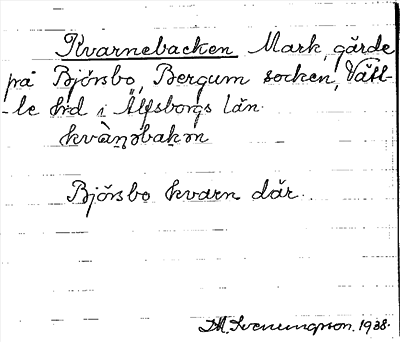 Kvarnebacken Mark, gärde
på Björsbo, Bergum socken, Vätt-
-le hd i Älfsborgs län.
kvàṇəbakən
Björsbo kvarn där.
M. Svenungsson. 1938.